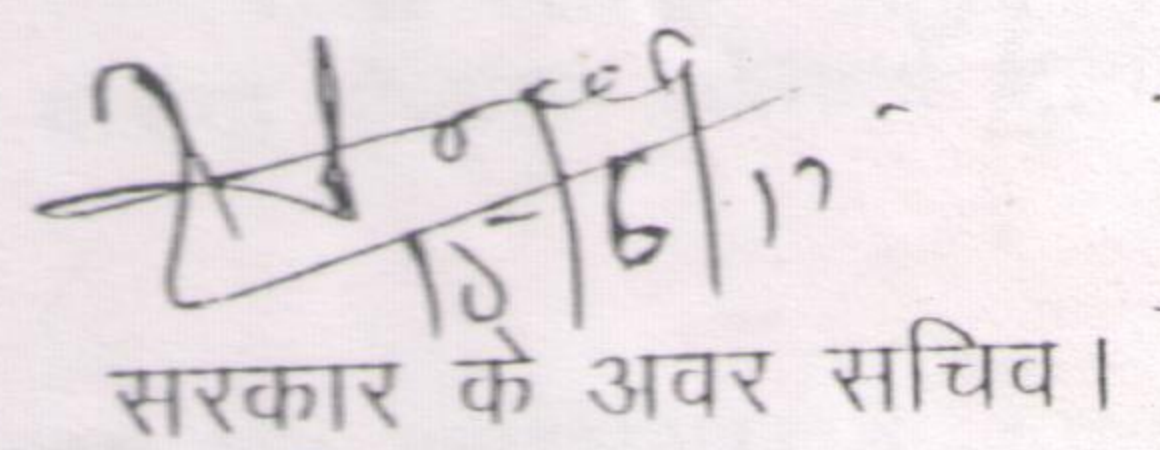 15/6/17
सरकार के अवर सचिव।